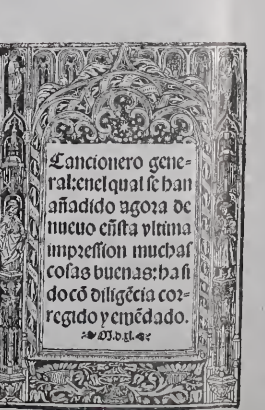 Cancionero gene-
ral:enel qual se han
añadido agora de
nueuo eñsta vltima
impression muchas
cosas buenas:ha si
do cõ diligẽcia cor-
regido y emẽdado.
M.d.xl.